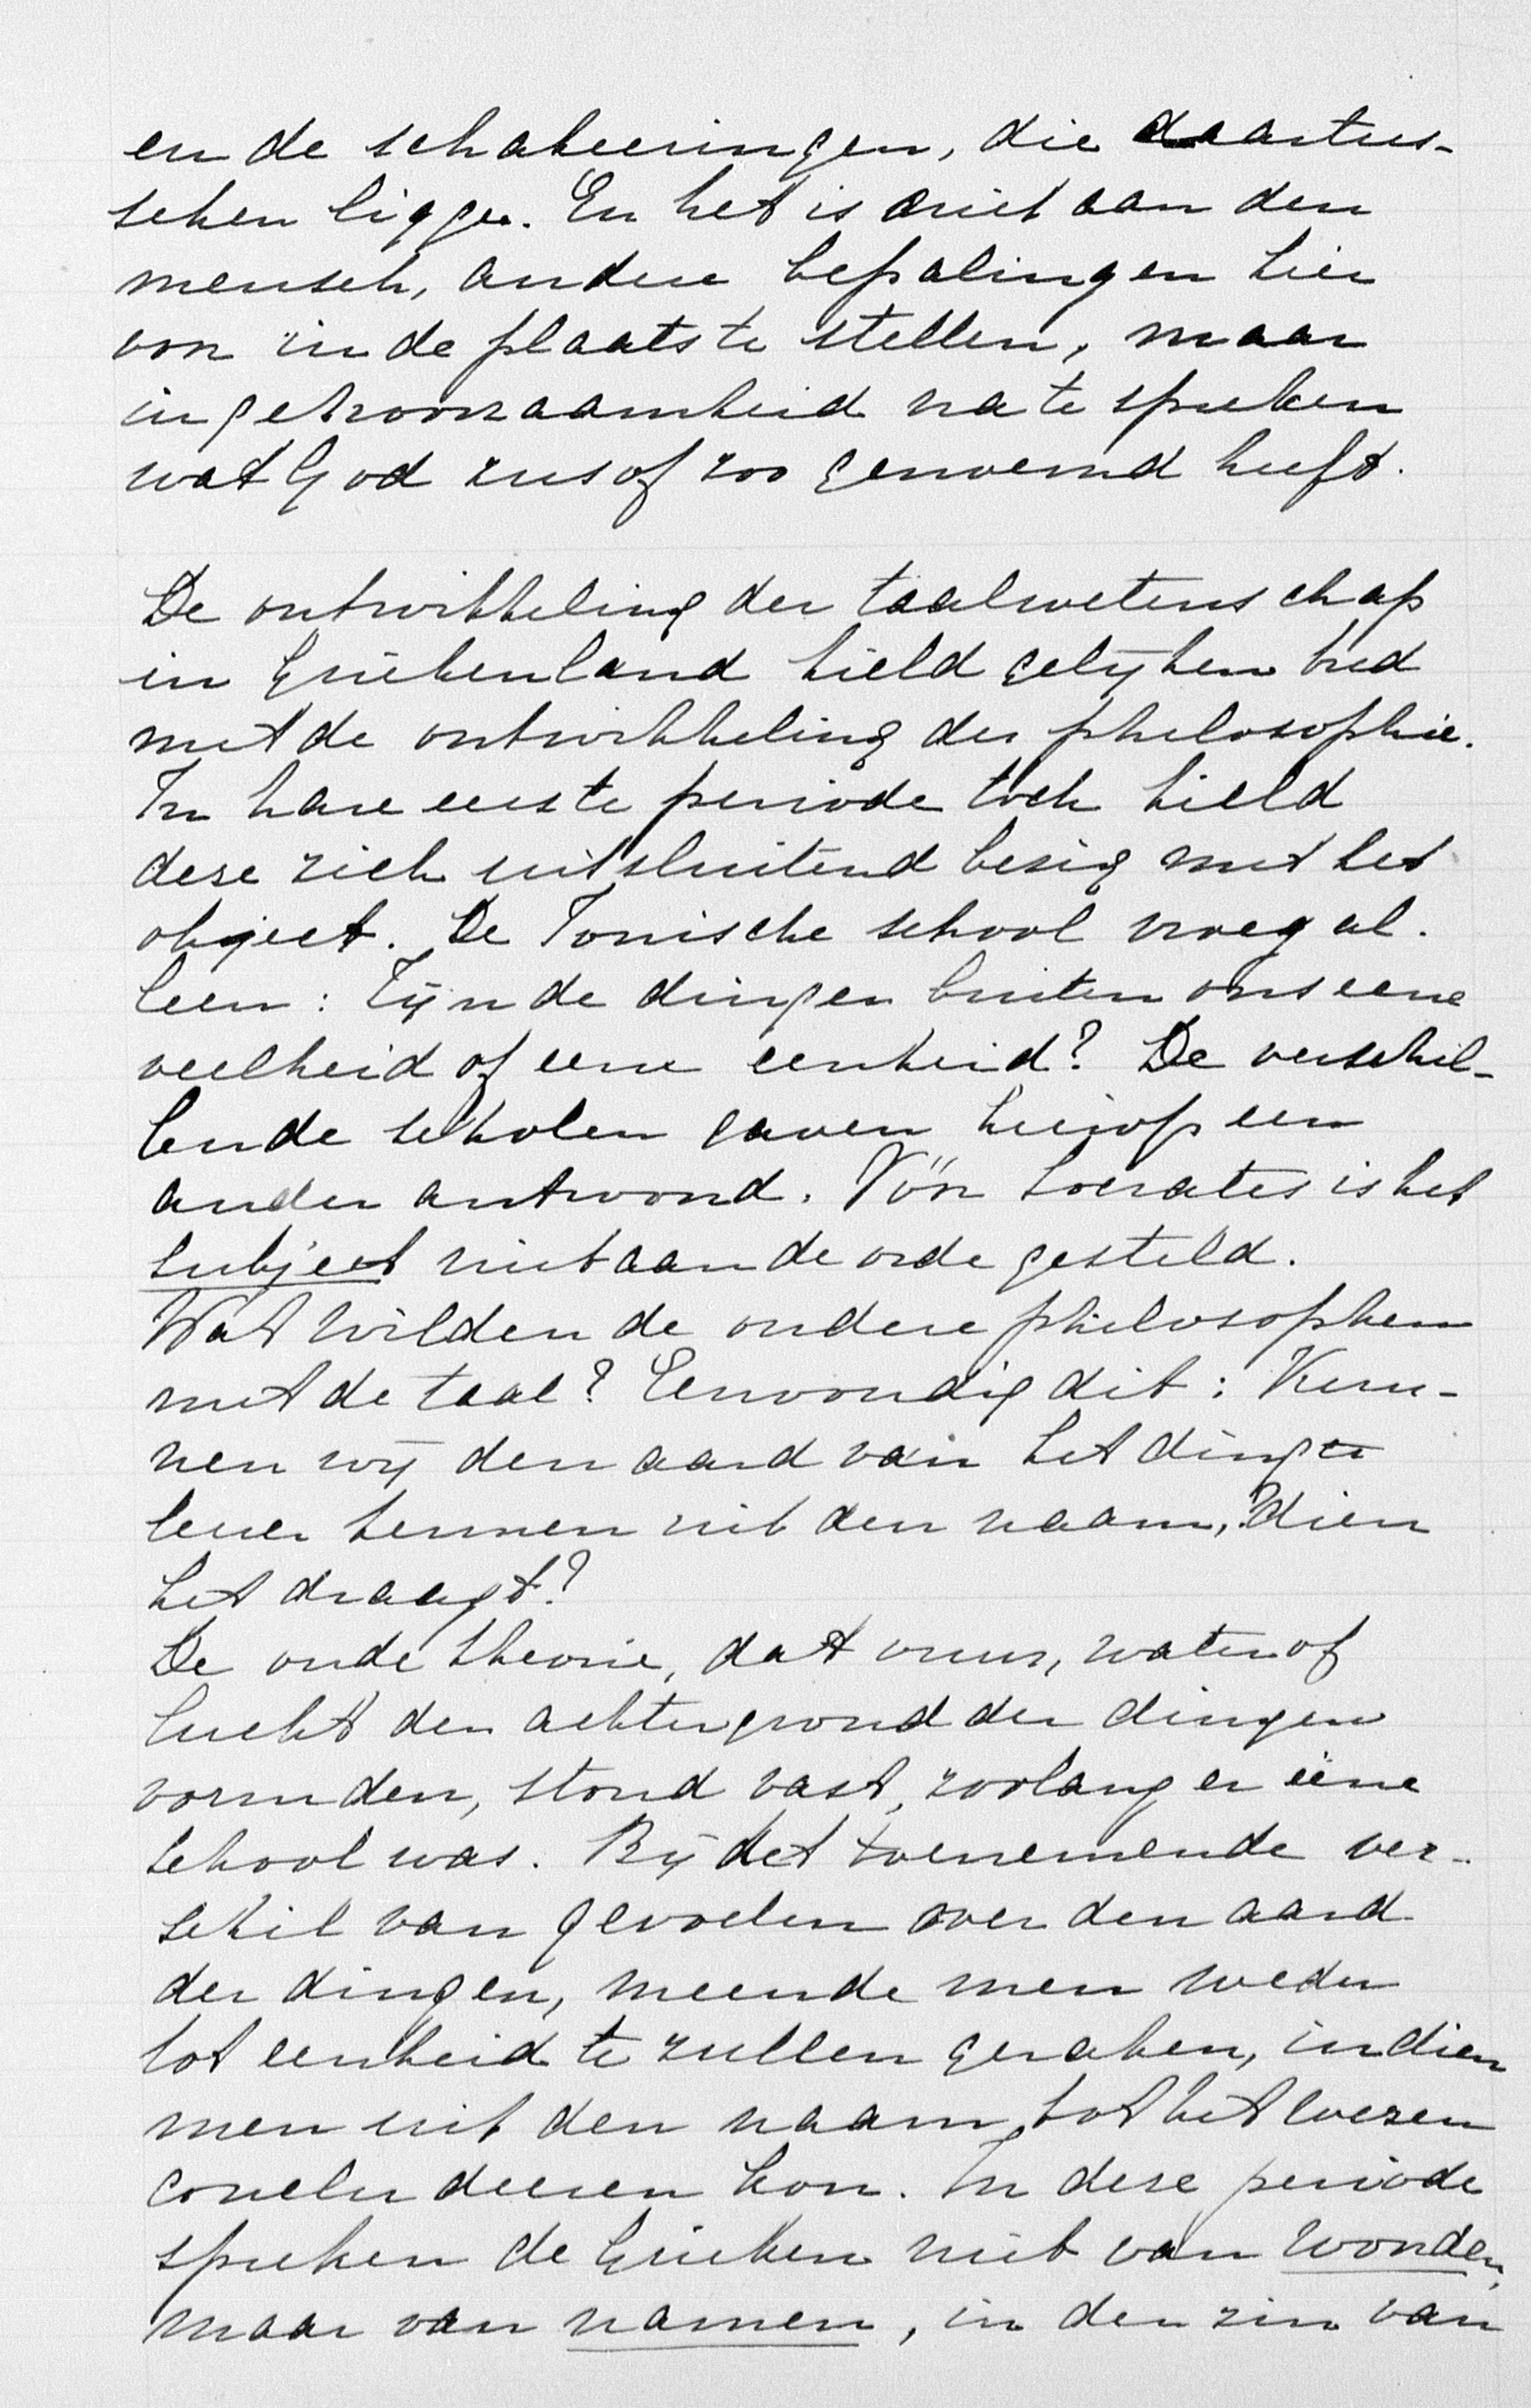 en de schakeeringen, die daartus-
schen liggen. En het is niet aan den
mensch, andere bepalingen hier
voor in de plaats te stellen, maar
in gehoorzaamheid na te spreken
wat God zus of zoo genoemd heeft.
De ontwikkeling der taalwetenschap
in Griekenland hield gelijken tred
met de ontwikkeling der philosophie.
In hare eerste periode toch hield
deze zich uitsluitend bezig met het
object. De Ionische school vroeg al-
leen: Zijn de dingen buiten ons eene
veelheid of eene eenheid? De verschil-
lende scholen gaven hierop een
ander antwoord. Vóór Socrates is het
subject niet aan de orde gesteld.
Wat wilden de oudere philosophen
met de taal? Eenvoudig dit: Kun-
nen wij den aard van het ding te
leeren kennen uit den naam, dien
het draagt?
De oude theorie, dat vuur, water of
lucht den achtergrond der dingen
vormden, stond vast, zoolang er ééne
school was. Bij het toenemende ver-
schil van gevoelen over den aard
der dingen, meende men weder
tot eenheid te zullen geraken, indien
men uit den naam tot het wezen
concludeeren kon. In deze periode
spreken de Grieken niet van woorden,
maar van namen, in den zin van